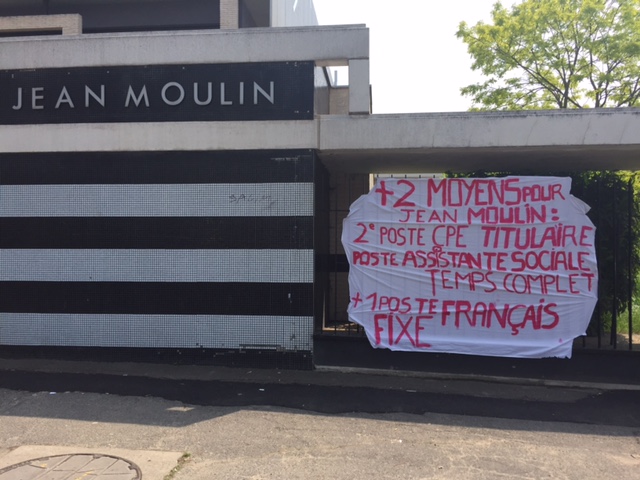 JEAN MOULIN
+2 MOYENS POUR
JEAN MOULIN:
2° POSTE CPE TITULAIRE
POSTE ASSISTANTE SOCIALE
TEMPS COMPLET
+ 1 POSTE FRANÇAIS
FIXE